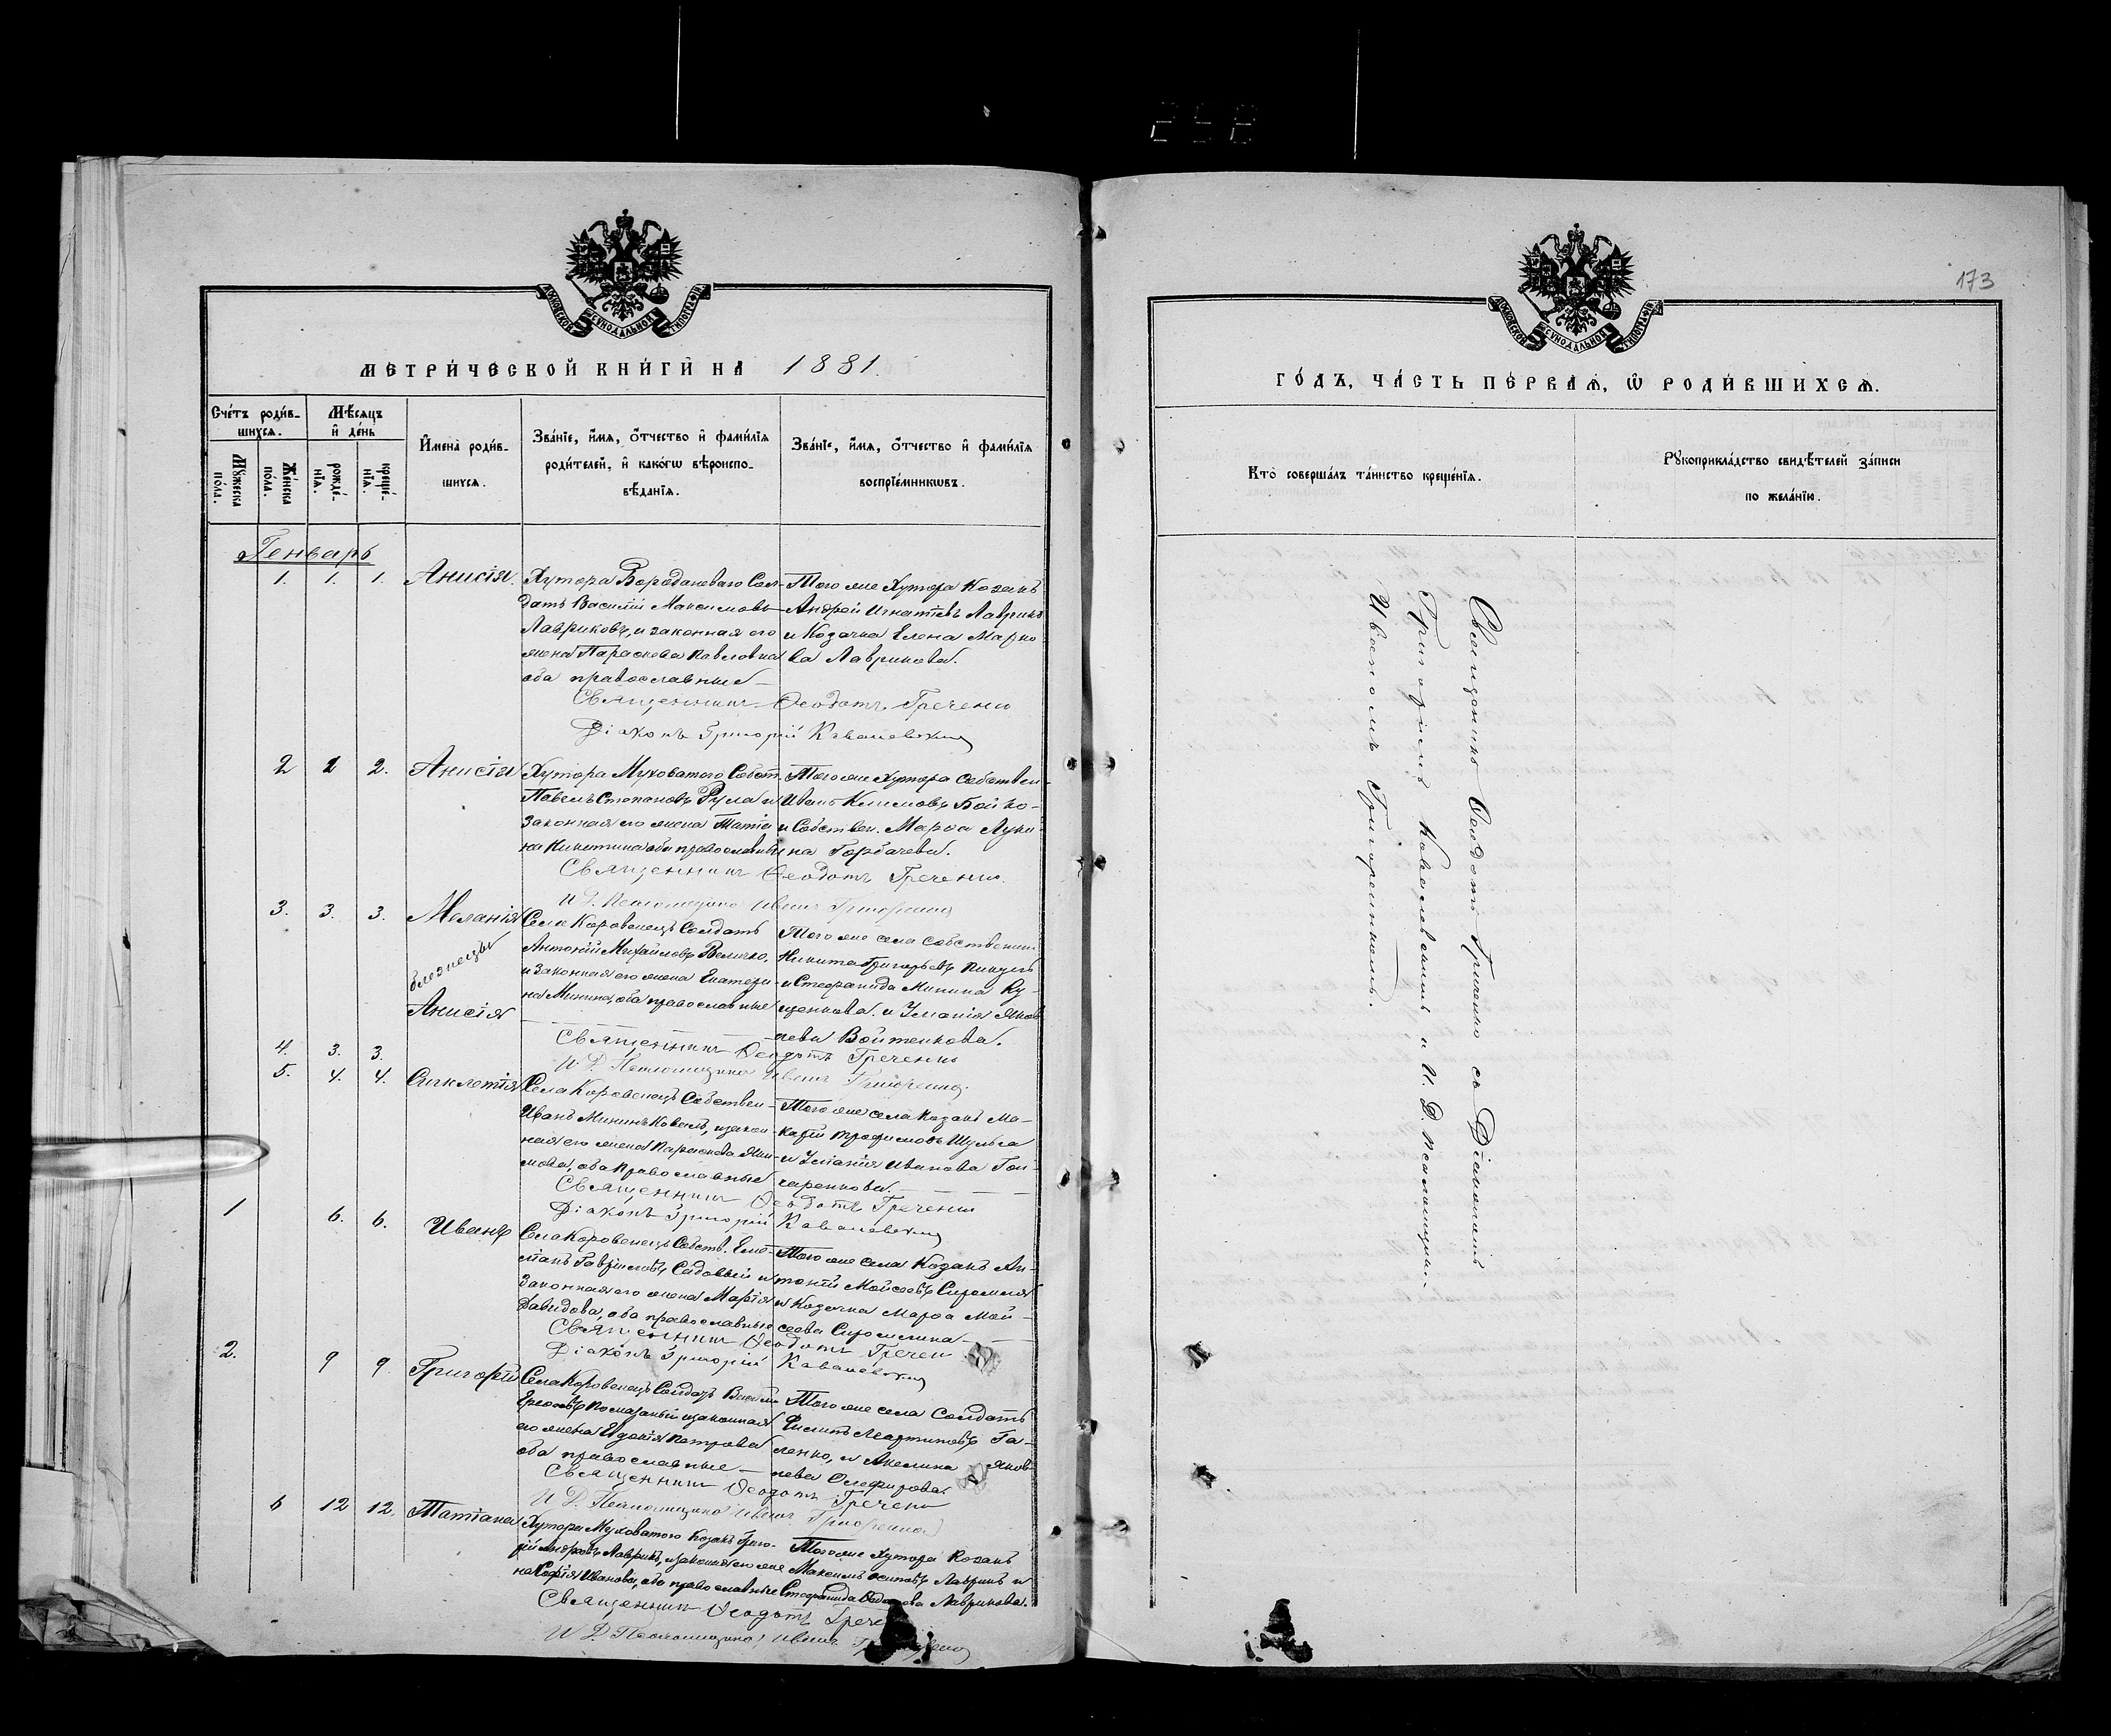 258
МОСКОВСКОЙ СѴНОДАЛЬНОЙ ТИПОГРАФІИ
МЕТРИ́ЧЕСКОЙ КНИ́ГИ НА 1881.
Сче́тъ роди́в-
шихсѧ.
Мѣ́сяцъ
и҆ де́нь
Мꙋ́жеска
по́ла.
Же́нска
по́ла.
рожде́-
нїѧ.
креще́-
нїѧ.
И҆мена̀ роди́в-
шихсѧ.
Зва́нїе, и҆́мѧ, ѻ҆́тчество и҆ фами́лїѧ
роди́телей, и҆ како́гѡ вѣроиспо-
вѣ́данїѧ.
Зва́нїе, и҆́мѧ, ѻ҆́тчество и҆ фами́лїѧ
воспрїе́мникѡвъ.
Генварь
1. 1. 1. Анисія.
Хутора Бороданеваго Сол-
датъ Василій Максимовъ
Лавриковъ, и законная его
жена Параскева Павловна
оба православные
Того же Хутора Козакъ
Андрей Игнатіевъ Лаврикъ
и Козачка Елена Марко
ва Лаврикова.
Священникъ Ѳеодотъ Гречени
Діаконъ Григорій Ковалевскій
2 2 2. Анисія
Хутора Муховатого Собст.
Павелъ Степановъ Рула и
законная его жена Татіа
на Никитина оба православные
Того же Хутора Собствен-
Иванъ Климовъ Бойко-
и Собствен. Марѳа Луки
на Горбачева.
Священникъ Ѳеодотъ Гречени
И. Д. Псаломщика Иванъ
3. 3. 3. Меланія
близнецы
Анисія
4. 3. 3.
Села Коровенецъ Солдатъ
Антоній Михайловъ Величко,
и законная его жена Екатери-
на Минина, оба православные
Того же села Собственни
Никита Григорьевъ
и Стефанида Минина Ку-
щенкова. и Уліанія Яков
лева Войтенкова.
Священникъ Ѳеодотъ Гречени
И. Д. Псаломщика Иванъ
5. 4. 4. Синклетія
Села Коровенецъ Собствен-
Иванъ Мининъ Коваль, и закон
ная его жена Параскева Яки-
мова, оба православные
Того же села Козакъ Ма-
карій Трофимовъ Шульга
и Уліанія Иванова Гон
чаренкова.
Священникъ Ѳеодотъ Гречени
Діаконъ Григорій Ковалевскій
1 6. 6. Иванъ
Села Коровенецъ Собств. Еме-
ліанъ Гавріиловъ Садовый и
законная его жена Марія
Давидова, оба православные
Того же села Козакъ Ан-
тоній Мойсеевъ Сиромля
и Козачка Марѳа Мой-
сеева Сиромлина
Священникъ Ѳеодотъ Гречен
Діаконъ Григорій Ковалевскій
2. 9 9 Григорій
Села Коровенецъ Солдатъ Василій
и законная
его жена Петрова
оба православные
Того же села Солдатъ
Филипъ Мартиновъ Га-
ленко, и Акелина Яков-
лева Олефирова.
Священникъ Ѳеодотъ Гречени
И. Д. Псаломщика Иванъ
6 12 12. Татіана
Хутора Муховатого Козакъ Григо-
рій Андреевъ Лаврикъ, и законная его же
на Софія Иванова, оба православные
Того же Хутора Козакъ
Максимъ Осиповъ Лаврикъ и
Стефанида Лаврикова.
Священникъ Ѳеодотъ Грече
И. Д. Псаломщика Иванъ
173
МОСКОВСКОЙ СѴНОДАЛЬНОЙ ТИПОГРАФІИ
ГО́ДЪ, ЧА́СТЬ ПЕ́РВАѦ, Ѡ҆ РОДИ́ВШИХСѦ.
Кто̀ соверша́лъ та́инство креще́нїѧ.
Рꙋкоприкла́дство свидѣ́телей за́писи
по жела́нїю.
Священникъ Ѳеодотъ Гречени съ Діакономъ
Григоріемъ Ковалевскимъ и И. Д. Псаломщика-
Иваномъ Григоренкомъ.